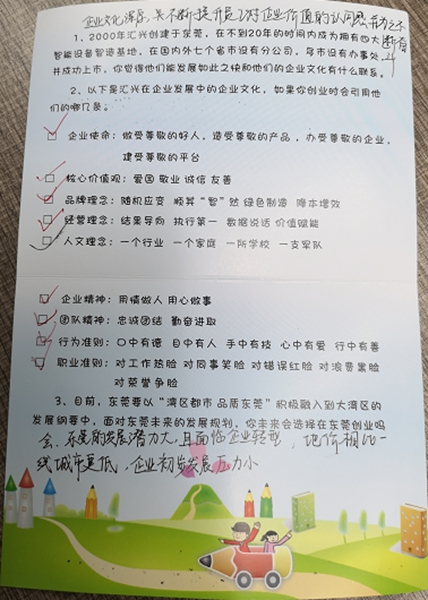 企业文化深层，并不断提升员工对企业价值的认同感
1、2000年汇兴创建于东莞，在不到20年的时间内成为拥有四大
智能设备智造基地，在国内外七个省市设有分公司，多市设有办事处，
并成功上市，你觉得他们能发展如此之快和他们的企业文化有什么联系。
2、以下是汇兴在发展中的企业文化，如果你创业时会引用他
们的哪几条。
企业使命：做受尊敬的好人，造受尊敬的产品，办受尊敬的企业，
建受尊敬的平台
核心价值观：爱国 敬业 诚信 友善
品牌理念：随机应变 顺其“智”然 绿色制造 降本增效
经营理念：结果导向 执行第一 数据说话 价值赋能
人文理念：一个行业 一个家庭 一所学校 一支军队
企业精神：用情做人 用心做事
团队精神：忠诚团结 勤奋进取
行为准则：口中有德 目中有人 手中有技 心中有爱 行中有善
职业准则：对工作热脸 对同事笑脸 对错误红脸 对浪费黑脸
对荣誉争脸
3、目前，东莞要以“湾区都市 品质东莞”积极融入到大湾区的
发展纲要中，面对东莞未来的发展规划，你未来会选择在东莞创业吗
会，东莞的发展潜力大，且面临企业转型，地价相比一
线城市更低，企业初步发展压力小